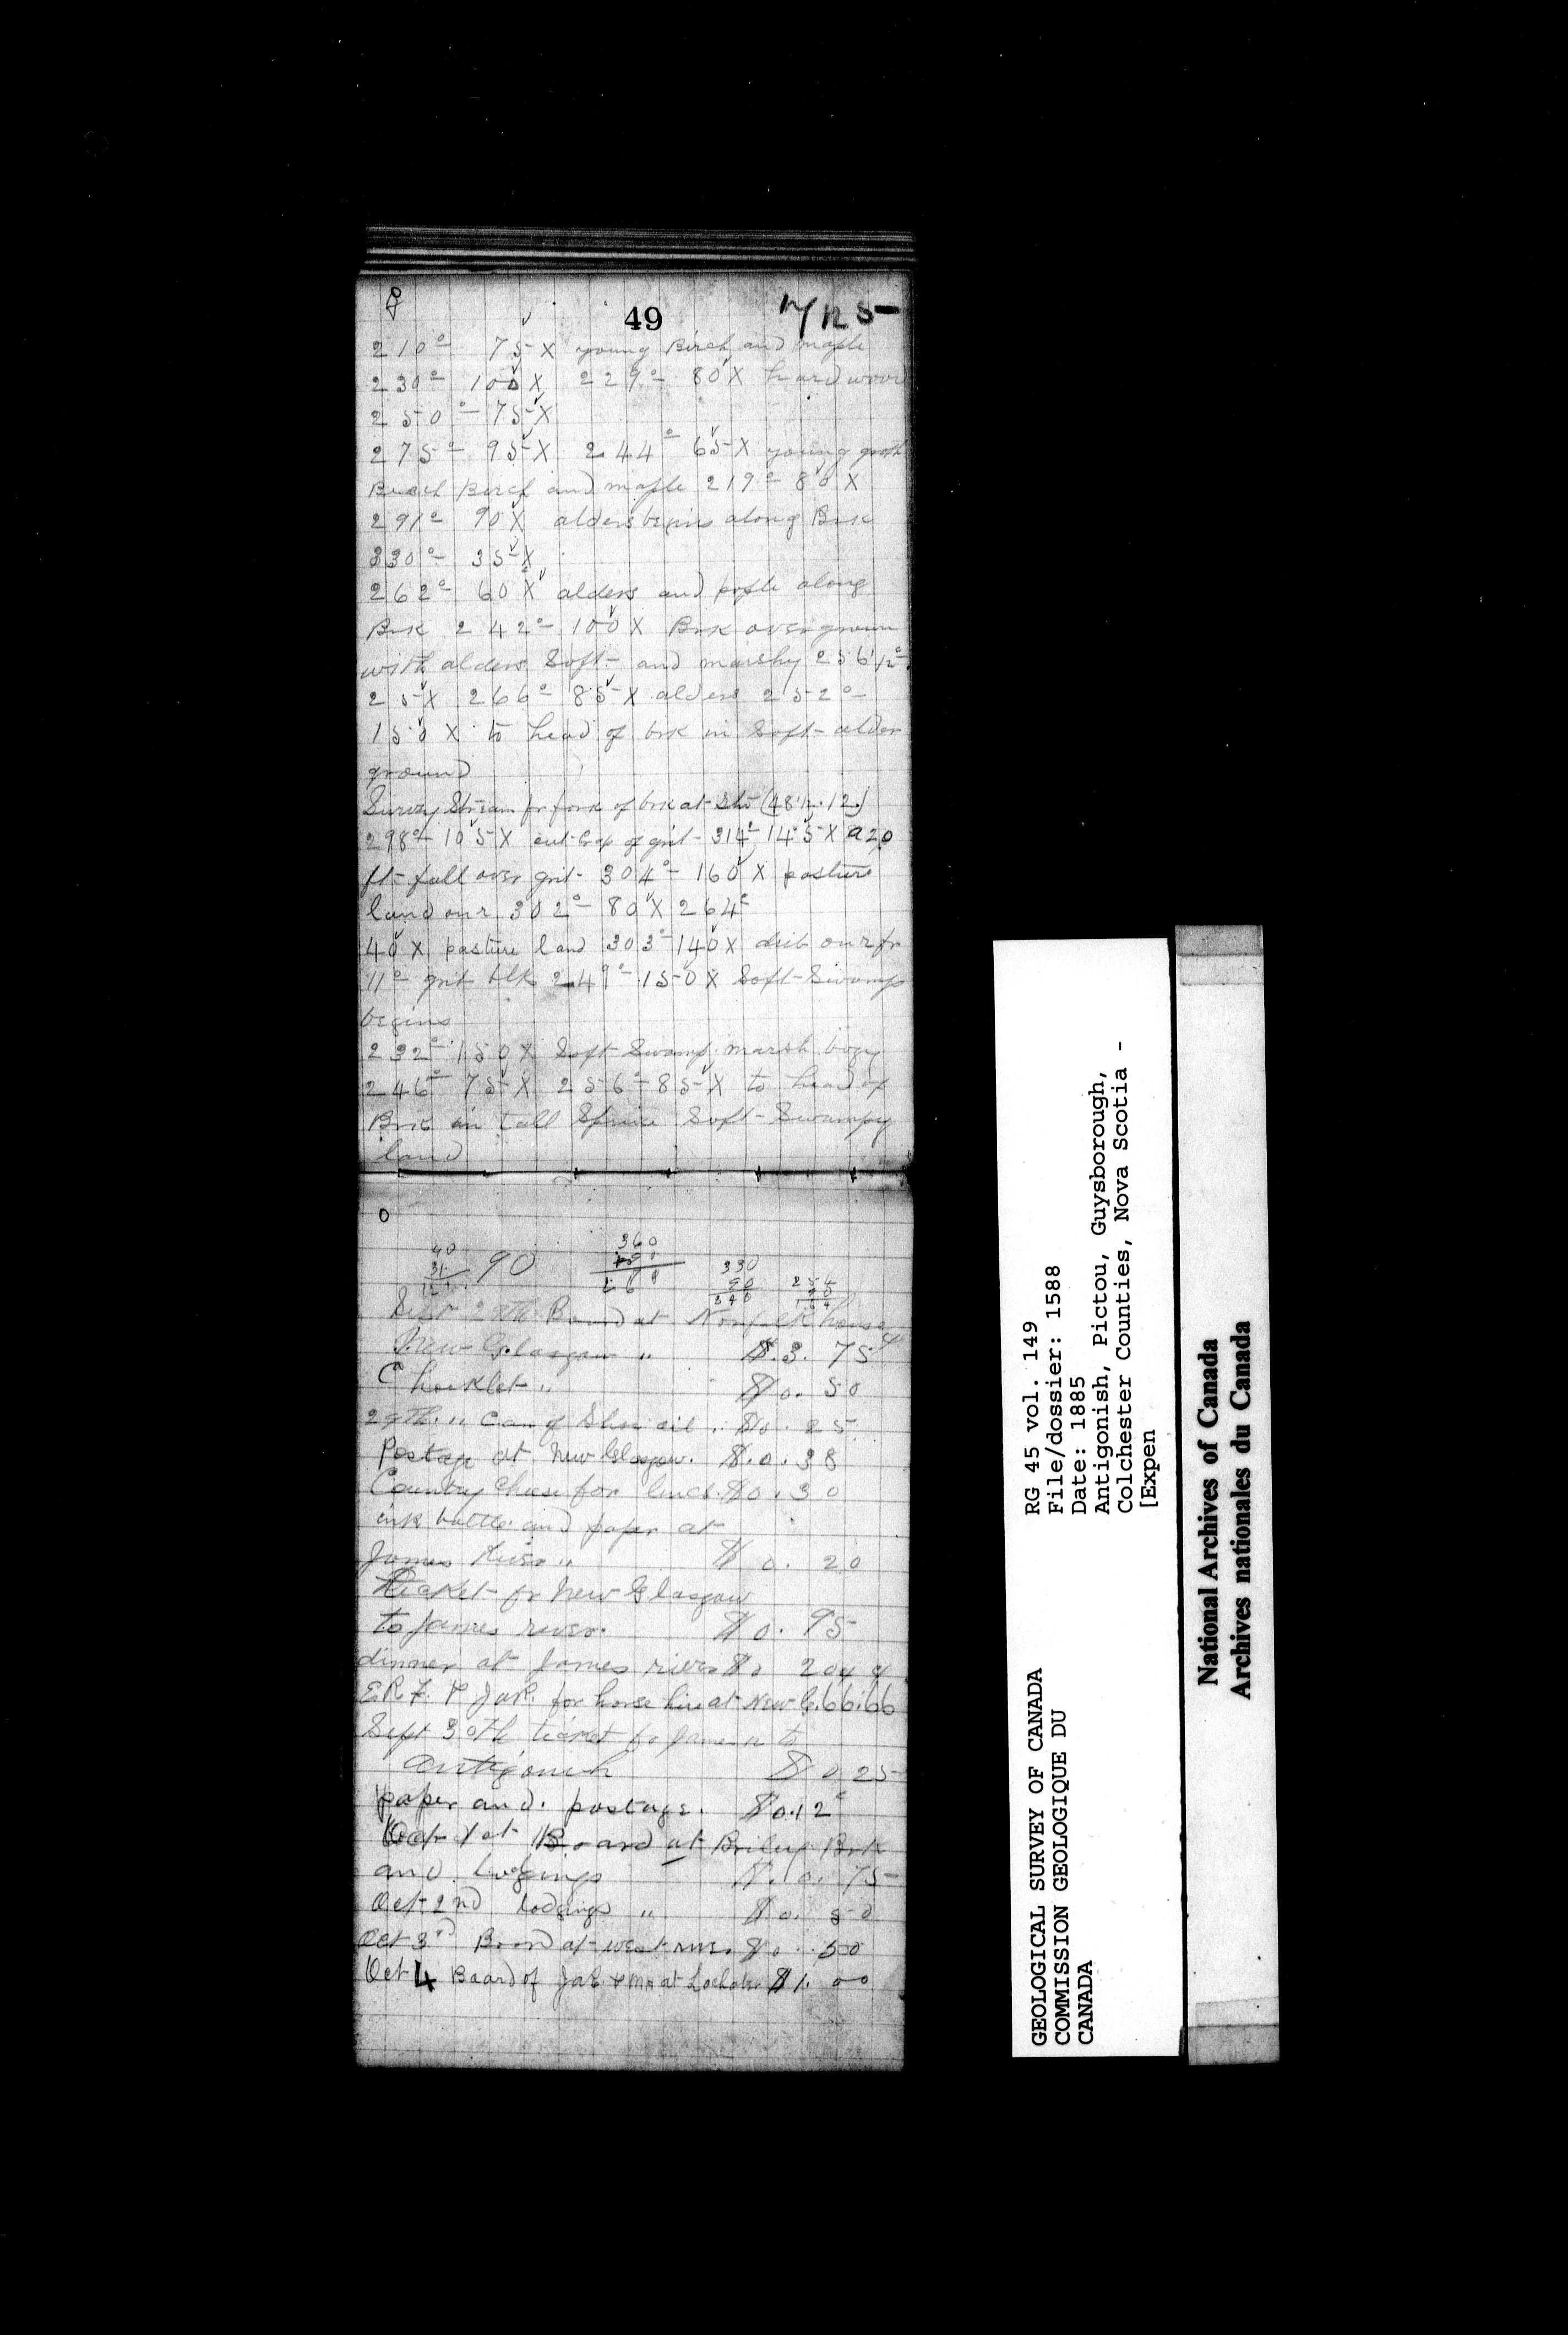 49
210° 75 X young Birch and maple
230° 100 X 229° 80 X hardwood
250° 75 X
275° 95 X 244° 65 X young groth
Beach Birch and maple 219° 80 X
291° 90 X alders begins along Brk
330° 35 X
262° 60 X alders and pople along
Brk 242° 100 X Brk overgrown
with alders Soft and marshy 256 1/2°
25 X 266° 85 X alders 252°
150 X to head of brk in Soft alder
ground
Survey Stream fr fork of brk at Stn (48 1/2.12)
298° 105 X out crop of grit 314° 145 X a 20
ft fall over grit 304° 160 X pasture
land on r 302° 80 X 264°
40 X pasture land 303° 140 X on r fr
11° grit blk 249° 150 X Soft Swamp
begins
232° 150 X Soft Swamp marsh bogy
246° 75 X 256° 85 X to head of
Brk in tall Spruce Soft Swampy
land
90
360
330
90
240
Sept 29th Board at Norfolk house
New Glasgow " $.3.75
$0.50
29th " Can of Shu oil " $0.25
Postage at New Glasgow. $.0.38
Country Cheese for $0.30
ink bottle and paper at
James River " $0.20
Ticket fr New Glasgow
to James river. $0.95
dinner at James river $0 20
E.R.F. for horse hire at New G. 66.66
Sept 30th ticket fr James R to
Antigonish $0 25
paper and. postage. $0.12
Oct 1st Board at Brk
and lodgings $.0.75
Oct 2nd lodgings " $0.50
Oct 3rd Board at west river $0.50
Oct 4 Board of at Lochaber $1.00
RG 45 vol. 149
File/dossier: 1588
Date: 1885
Antigonish, Pictou, Guysborough,
Colchester Counties, Nova Scotia -
[Expen
GEOLOGICAL SURVEY OF CANADA
COMMISSION GEOLOGIQUE DU
CANADA
National Archives of Canada
Archives nationales du Canada